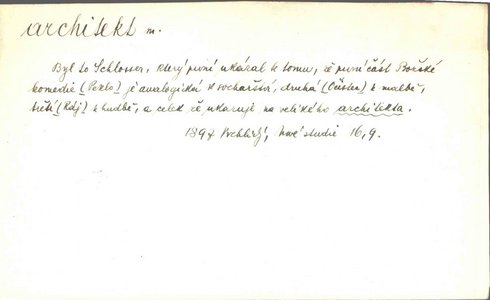 architekt m.
Byl to Schlosser, který první ukázal k tomu, že první část Božské
komedie (Peklo) je analogická k sochařství, druhá (Očistec) k malbě,
třetí (Ráj) k hudbě, a celek že ukazuje na velikého architekta.
1894 Vrchlický, Nové studie 16, 9.